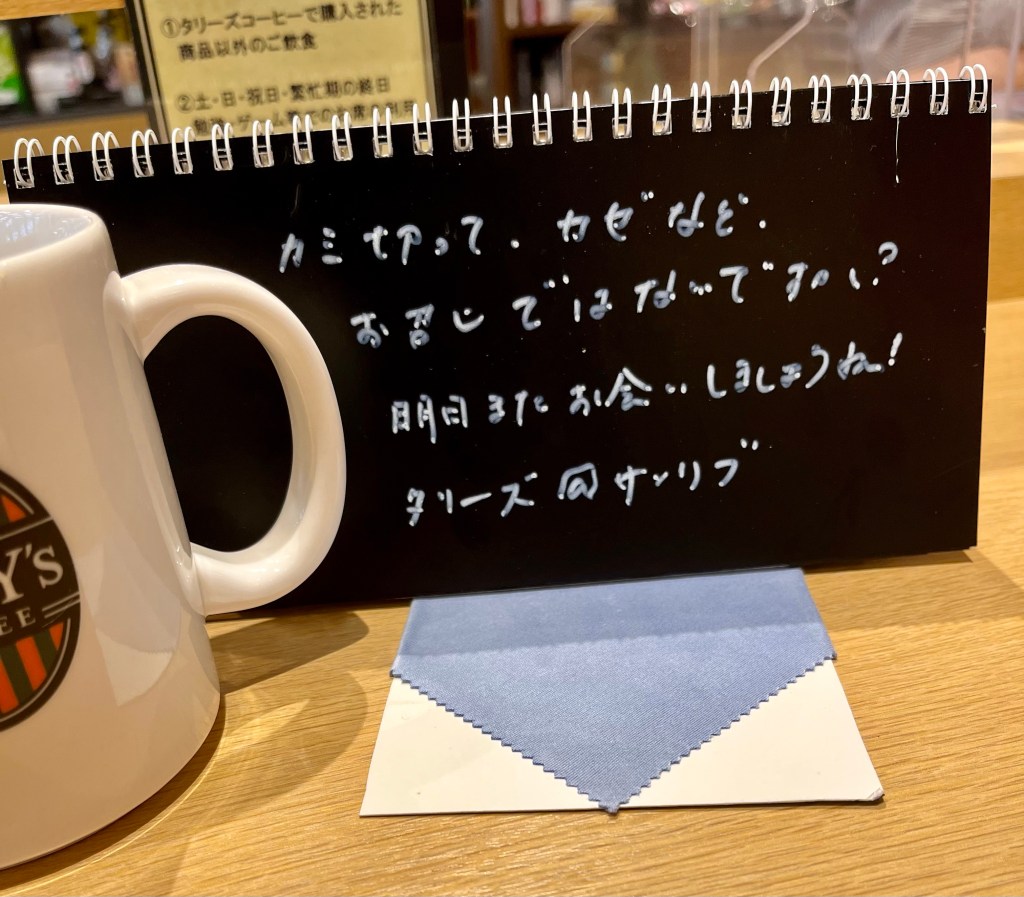 ①タリーズコーヒーで購入された
商品以外のご飲食
②土・日・祝日・繁忙期の終日
カミ切って、カゼなど、
お召しではないですかい?
明日またお会いしましょうね!
タリーズ@サンリブ
Y'S
EE